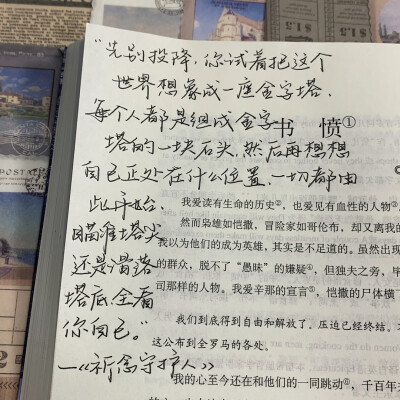 "先别投降,你试着把这个
世界想象成一座金字塔.
每个人都是组成金字
塔的一块石头,然后再想想
自己正处在什么位置,一切都由
此开始.
瞄准塔尖
还是滑落
塔底全看
你自己."
—《祈念守护人》
书 愤①
我爱读有生命的历史②,也爱见有血性的人物③
然而枭雄如恺撒,冒险家如哥伦布,却又离我的
我以为他们的成为英雄,其实是不足道的。虽然出现
的群众,脱不了“愚昧”的嫌疑⑤,但独夫之旁,毕
司那样的人物。我爱辛那的宣言⑥,恺撒的尸体横
我们到底得到自由和解放了。压迫已经终结。
这公布到全罗马的各处。
我的心至今还在和他们的一同跳动⑧,千百年
POSTALE